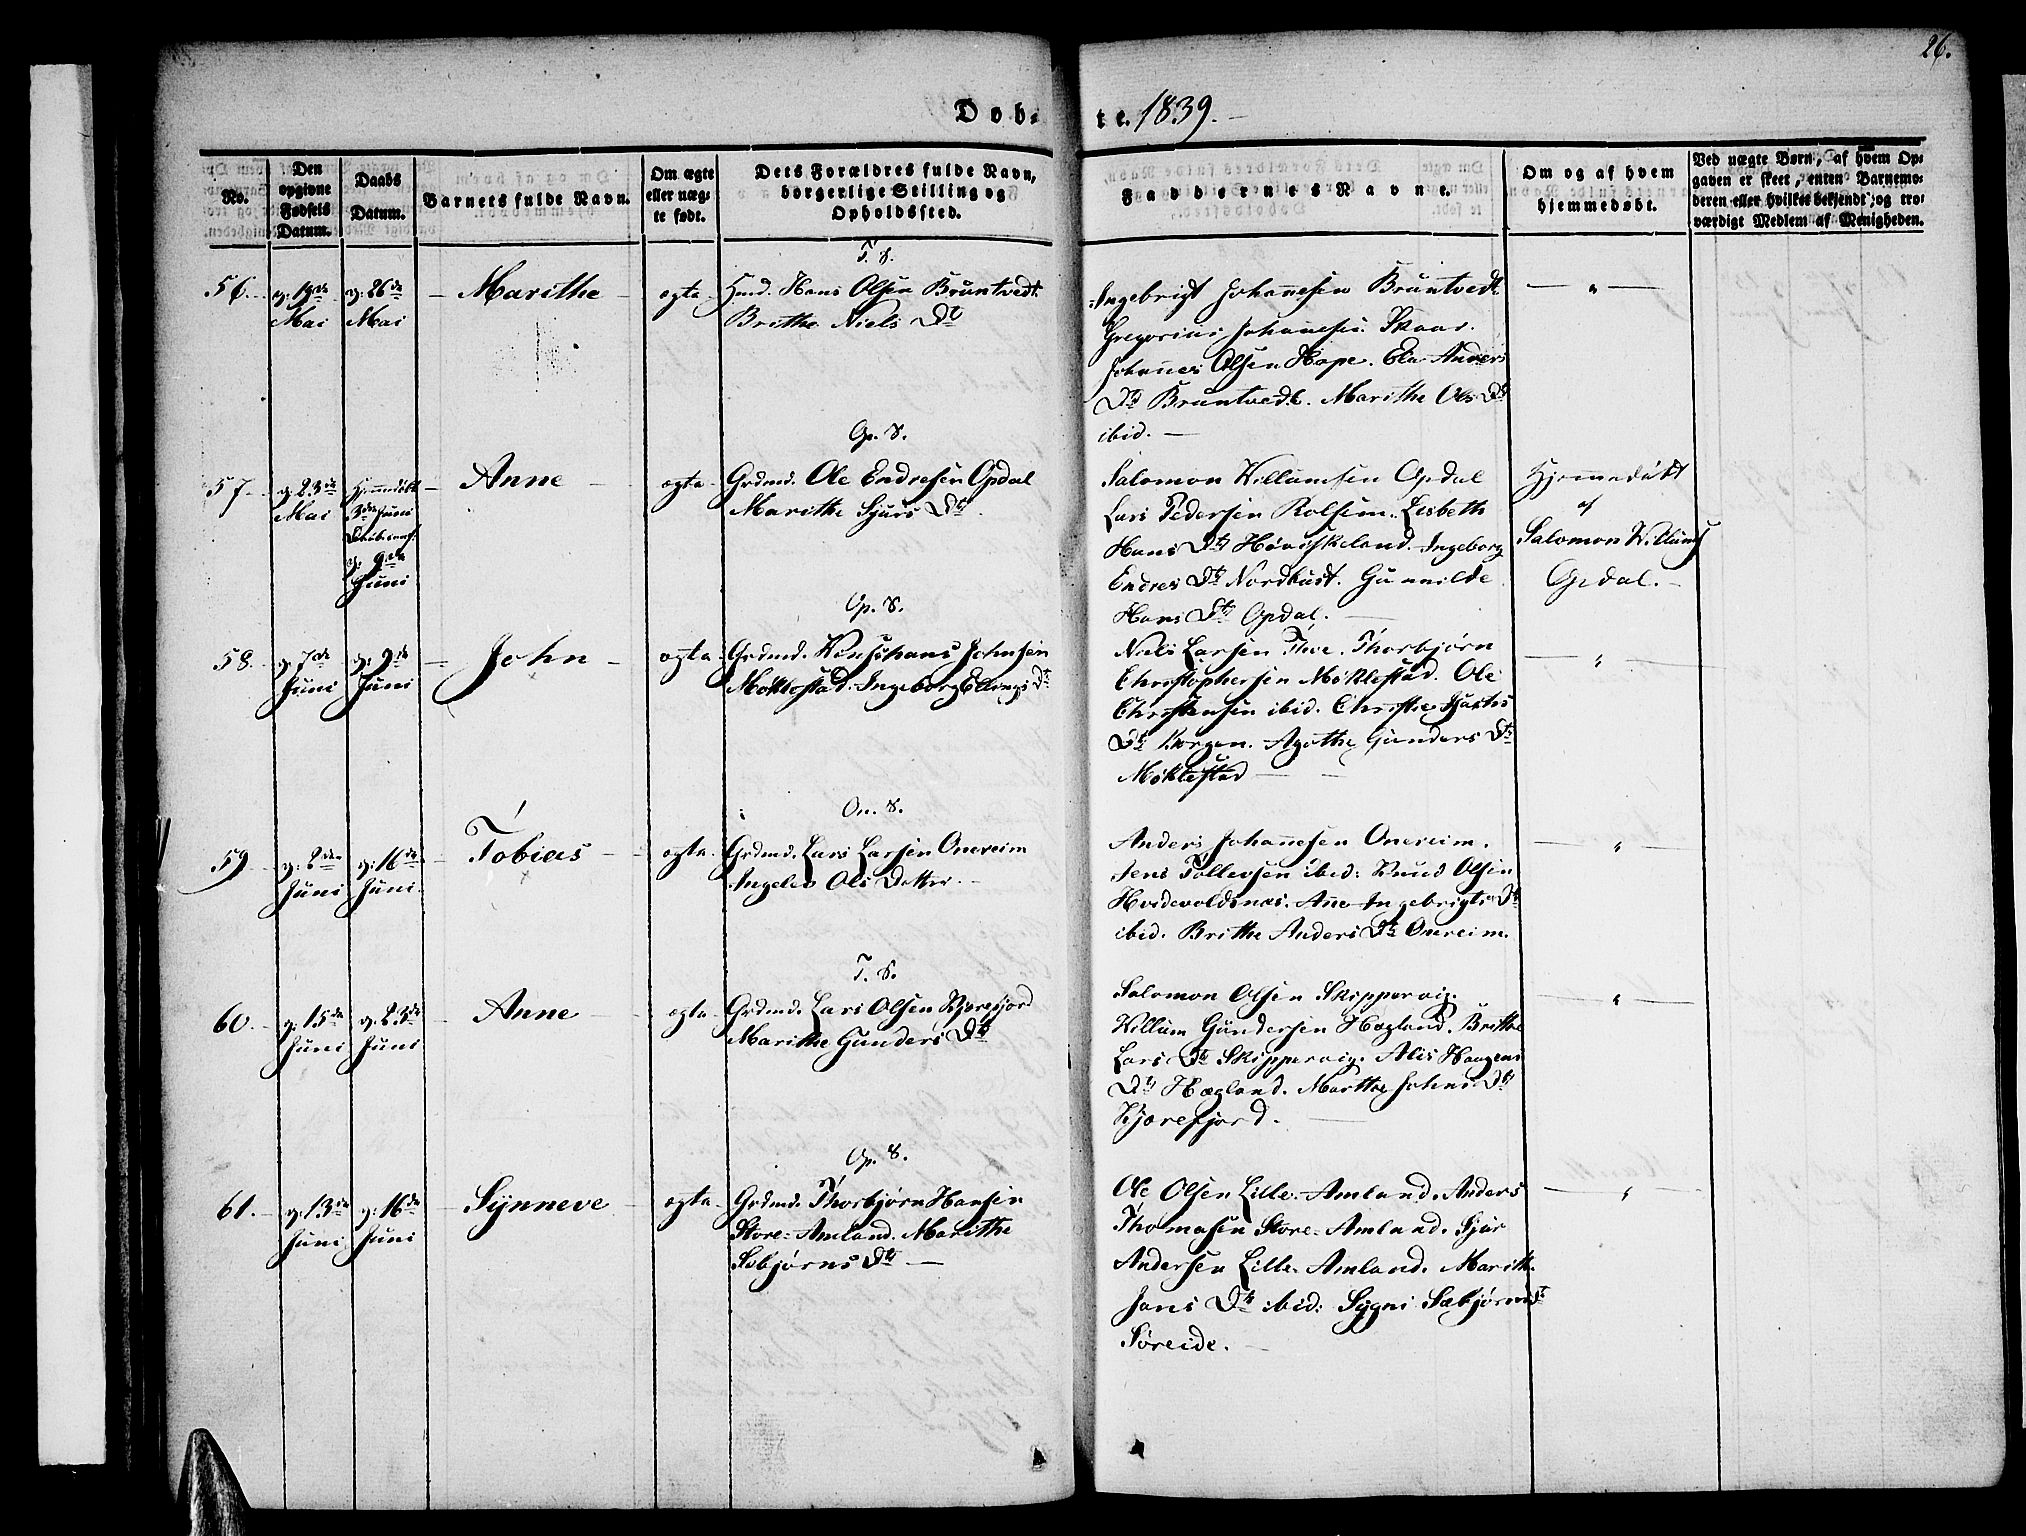 26.
Døb- te. 1839.
No.
Den opgivne Fødsels Datum.
Daabs Datum.
Barnets fulde Navn.
Om ægte eller uægte født.
Dets Forældres fulde Navn, borgerlige Stilling og Opholdssted.
Faddernes Navne.
Om og af hvem hjemmedøbt.
Ved uægte Børn, af hvem Opgaven er skeet, enten Barnemoderen eller hvilket bekjendt og troværdigt Medlem af Menigheden.
T. S.
56. d: 19de d: 26de Marithe ægte Huusmd. Hans Olsen Bruntvedt
Mai Mai Brithe Niels Dtr
Ingebrigt Johannesen Bruntvedt
Gregorius Johannesen Skaar.
Johannes Olsen Hope. Ela Anders
Dtr Bruntvedt. Marithe Ols Dtr
ibid. —
Op. S.
57. d: 23de Hjemmedøbt Anne ægte Grdmd. Ole Endresen Opdal
Mai 3de Juni Marithe Sjurs Dtr
d: 9de
Juni
Salomon Willumsen Opdal
Lars Pedersen Rolsim. Lisbeth
Hans Dtr Høviskeland. Ingeborg
Endres Dtr Nordhust. Gunnilde
Hans Dtr Opdal.
Hjemmedøbt
af
Salomon Willums
Opdal.
Op. S.
58. d: 7de d: 9de John ægte Grdmd. Johnsen
Juni Juni Møklestad. Ingeborg Ellings Dtr
Niels Larsen Thve. Thorbjørn
Christophersen Møklestad. Ole
Christensen ibid. Christhe
Dtr Borgen. Agathe Gunders Dtr
Møklestad
On. S.
59 d: 2den d: 16de Tobias ægte Grdmd. Lars Larsen Onereim
Juni Juni. Ingelev Ols Datter.
Anders Johannesen Onereim.
Jens Tollevsen ibid: Knud Olsen
Hvidevoldsnæs. Anne Ingebrigts Dtr
ibid. Brithe Anders Dtr Onereim.
T. S.
60. d: 15de d: 23de Anne ægte Grdmd. Lars Olsen Kjærefjord
Juni Juni Marithe Gunders Dtr
Salomon Olsen Skippervig.
Willum Gundersen Hægland. Brithe
Lars Dtr Skippervig. Alis Haagens
Dtr Hægland. Marthe Johns Dtr
Kjærefjord.
Op. S.
61. d: 13de d: 16de Synneve ægte Grdmd. Thorbjørn Hansen
Juni Juni Store-Amland. Marithe
Sæbjørns Dtr —
Ole Olsen Lille-Amland. Anders
Thomasen Store-Amland. Sjur
Andersen Lille-Amland. Marithe
Jans Dtr ibid: Sygni Sæbjørns Dtr
Søreide.